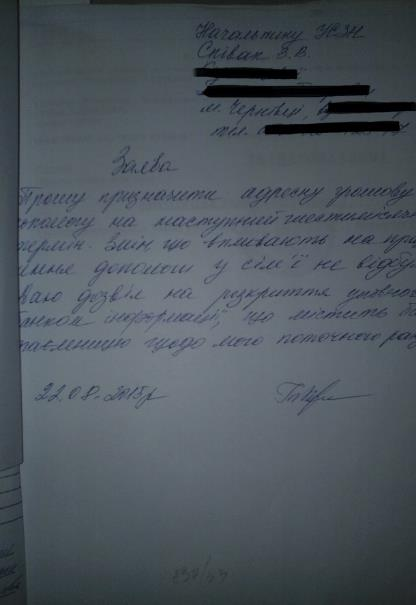 Начальнику УСЗН
Співак З.В.
м. Чернівці,
тел.
Заява
Прошу призначити адресну грошову
допомогу на наступний шестимісячний
термін. Змін, що впливають на при
ння допомоги у сім'ї не відбу
ваю дозвіл на розкриття уповнов
банком інформації, що містить ба
таємницю щодо мого поточного рах
22.08.2015р
837/53